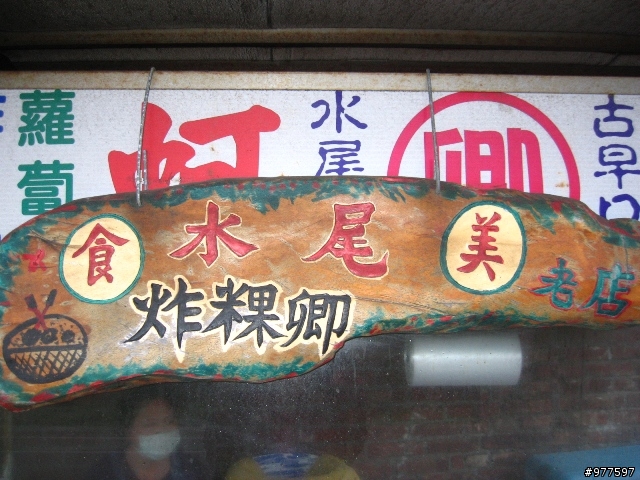 蘿蔔
蚵
水尾
卿
古早
美 水尾 食
老店
炸粿卿
#977597